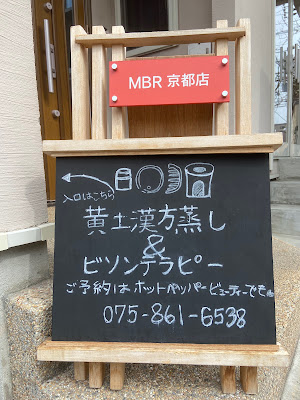 MBR 京都店
入口はこちら
黄土漢方蒸し
&
ビソンテラピー
ご予約はホットペッパービューティーでも
075-861-6538